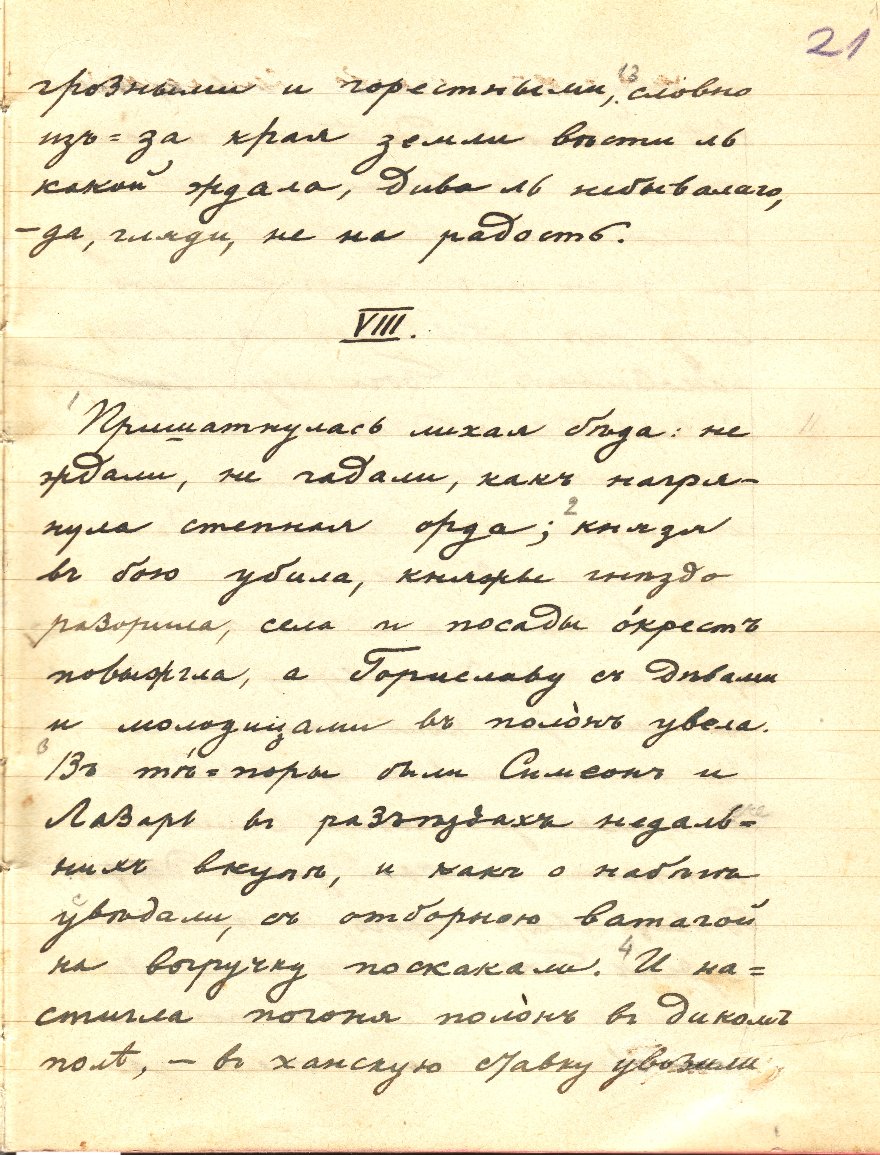 21
грозными и горестными, 13 словно
изъ=за края земли вѣсти ль
какой ждала, дива ль небывалаго,
–да, гляди, не на радость.
VIII.
1 Пришатнулась лихая бѣда: не
ждали, не гадали, какъ нагря-
нула степная орда; 2 князя
въ бою убила, княжье гнѣздо
разорила, села и посады о́крестъ
повыжгла, а Гориславу съ дѣвами
и молодицами въ поло̀нъ увела.
3 Въ тѣ́=поры были Симеонъ и
Лазарь въ разъѣздахъ недаль=
нихъ вкупѣ, и какъ о набѣгѣ
увѣдали, съ отборною ватагой
на выручку поскакали. 4 И на=
стигла погоня поло̀нъ въ дикомъ
полѣ, – въ ханскую ставку увозили